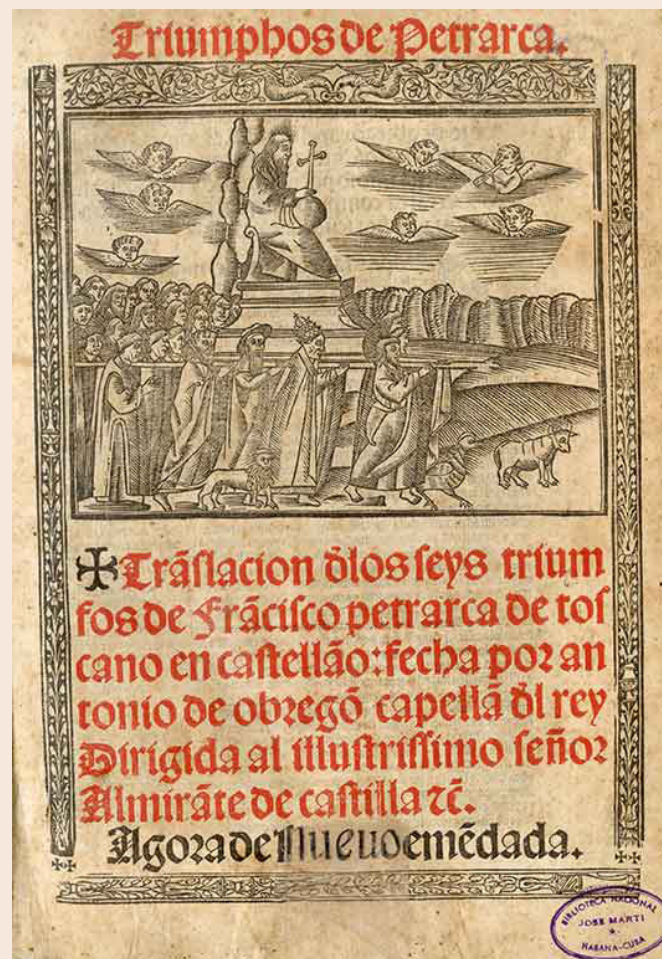 Triumphos de Petrarca.
✠Trãslacion d̃los seys trium
fos de Frãcisco petrarca de tos
cano en castellão: fecha por an
tonio de obregõ capellã d̃l rey
Dirigida al illustrissimo señor
Almirãte de castilla ⁊c̃.
Agora de Nueuo emẽdada.
BIBLIOTECA NACIONAL
JOSE MARTI
*
HABANA-CUBA